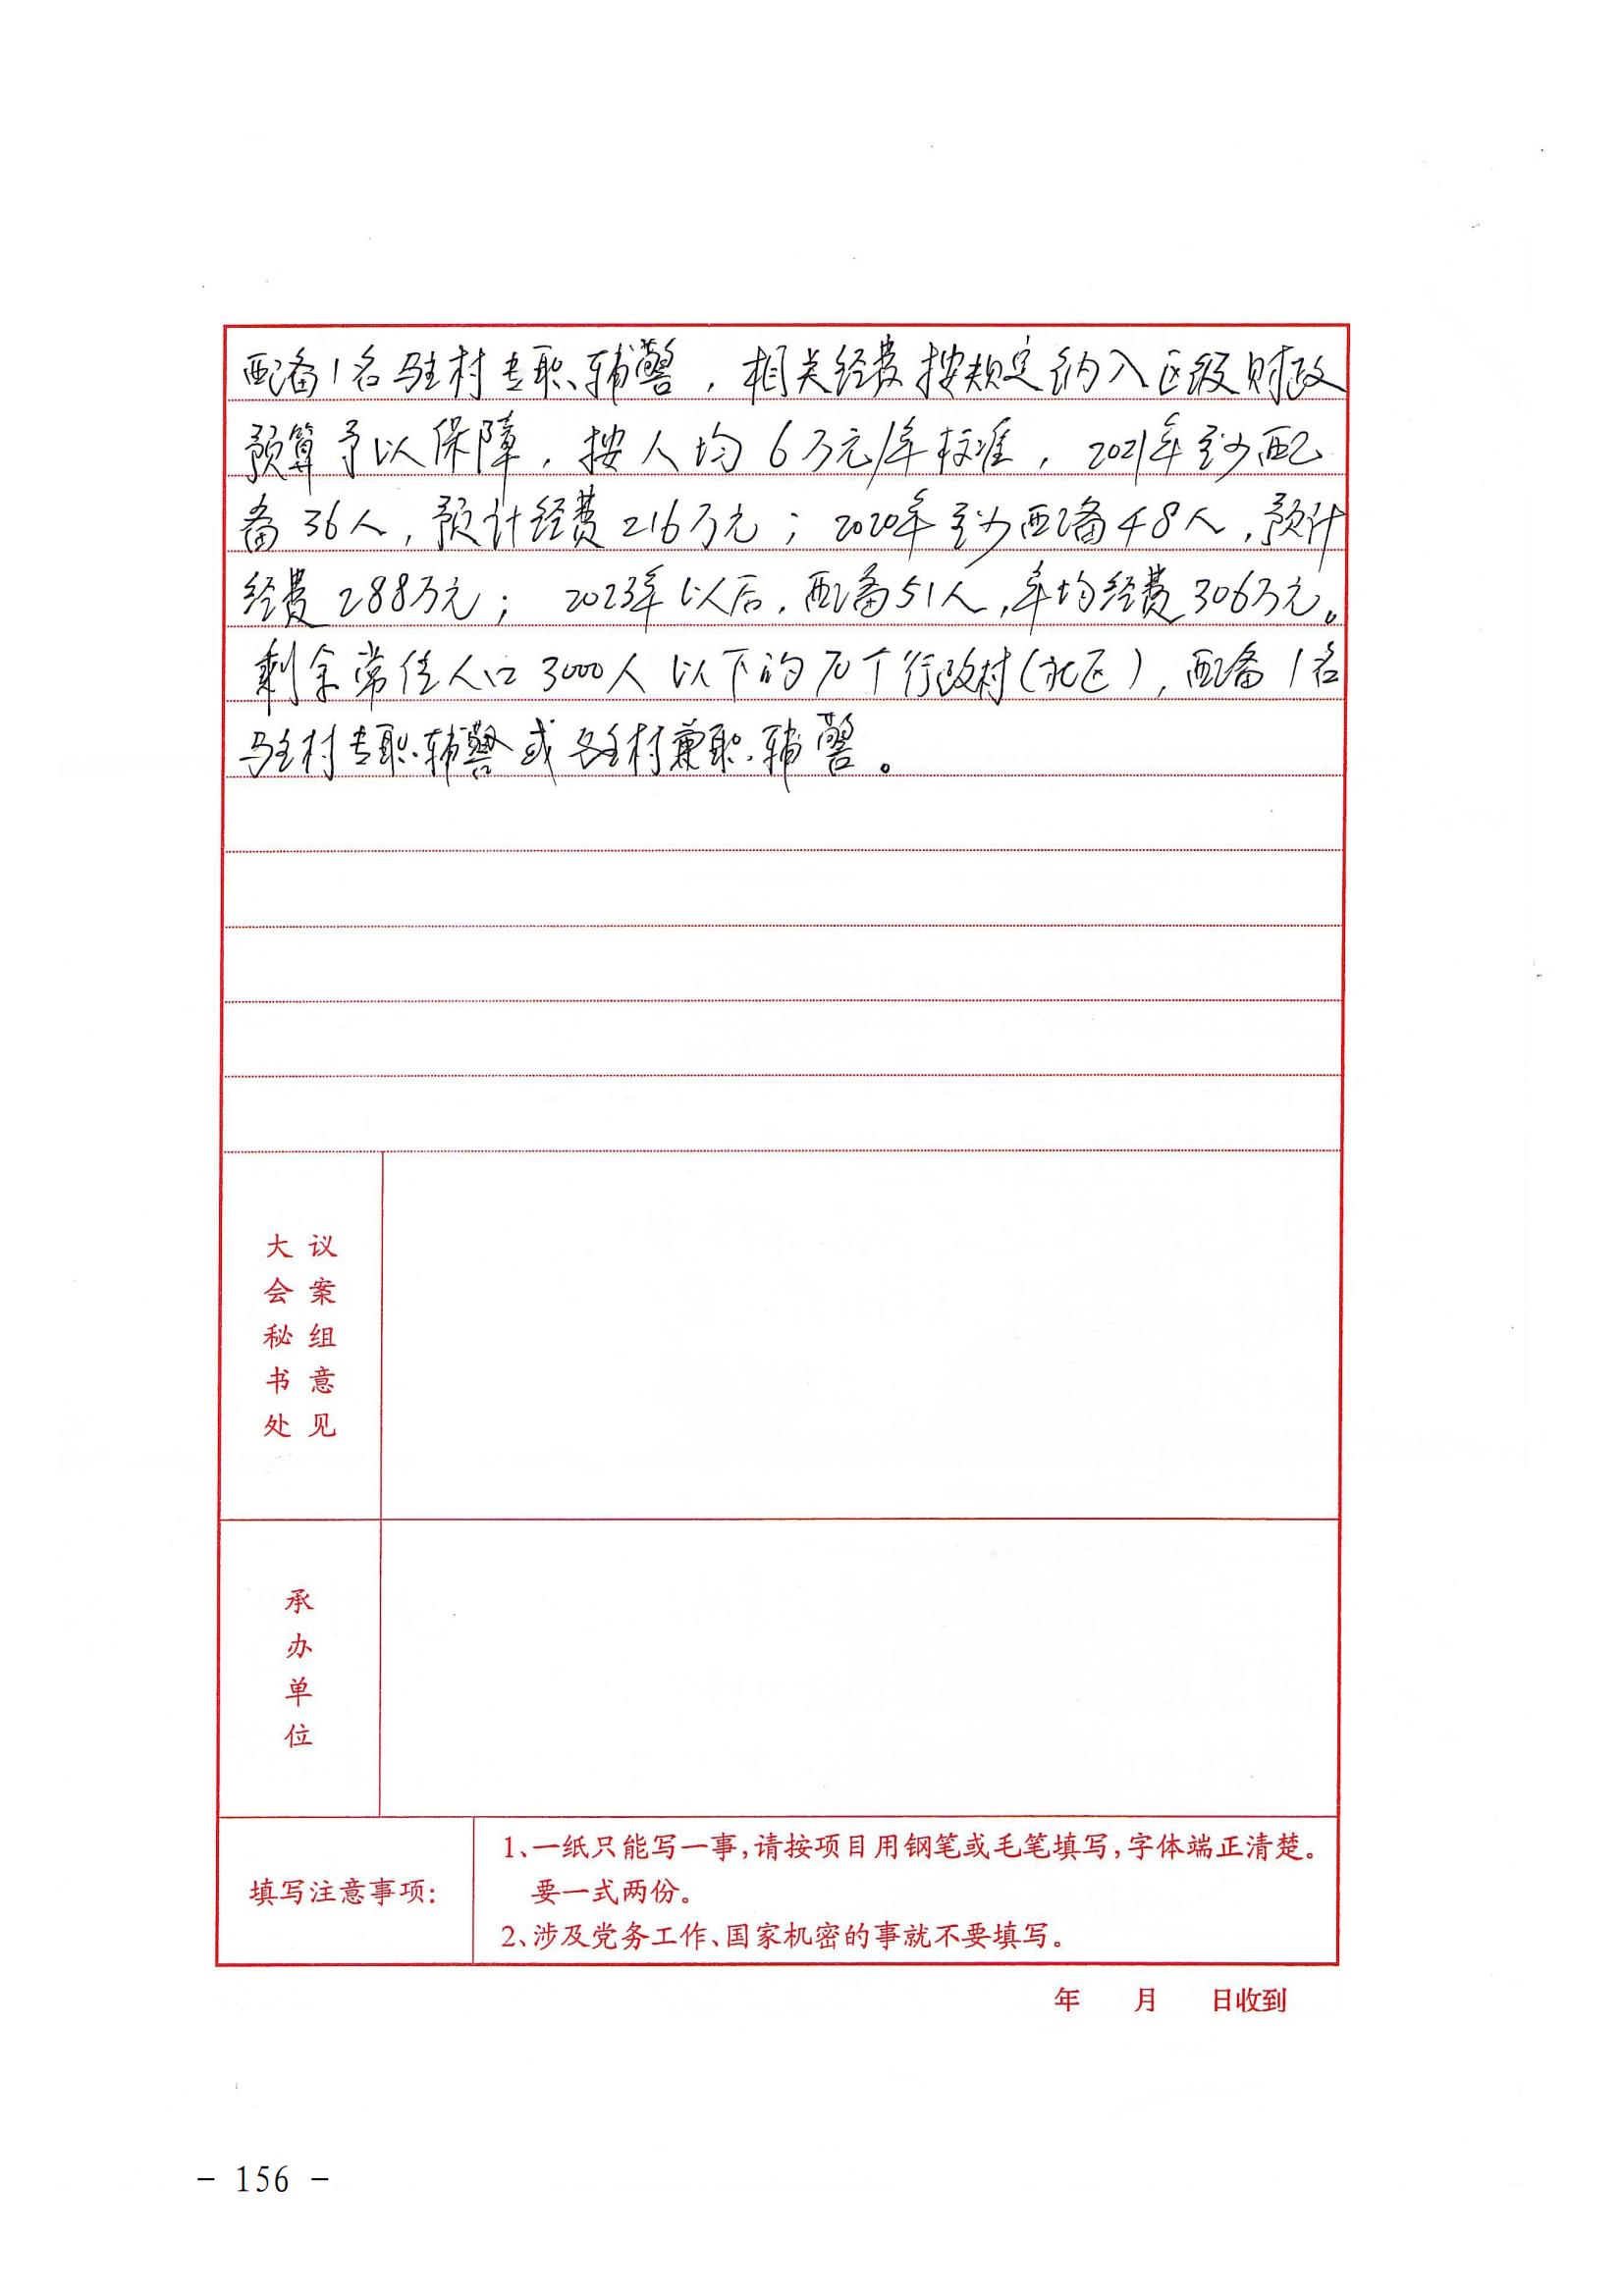 配备1名驻村专职辅警，相关经费按规定纳入区级财政
预算予以保障，按人均6万元/年标准，2021年至少配
备36人，预计经费216万元；2020年至少配备48人，预计
经费288万元；2023年以后，配备51人，年均经费306万元。
剩余常住人口3000人以下的70个行政村（社区），配备1名
驻村专职辅警或驻村兼职辅警。
大会秘书处
议案组意见
承办单位
填写注意事项：
1、一纸只能写一事，请按项目用钢笔或毛笔填写，字体端正清楚。
要一式两份。
2、涉及党务工作、国家机密的事就不要填写。
年 月 日收到
- 156 -